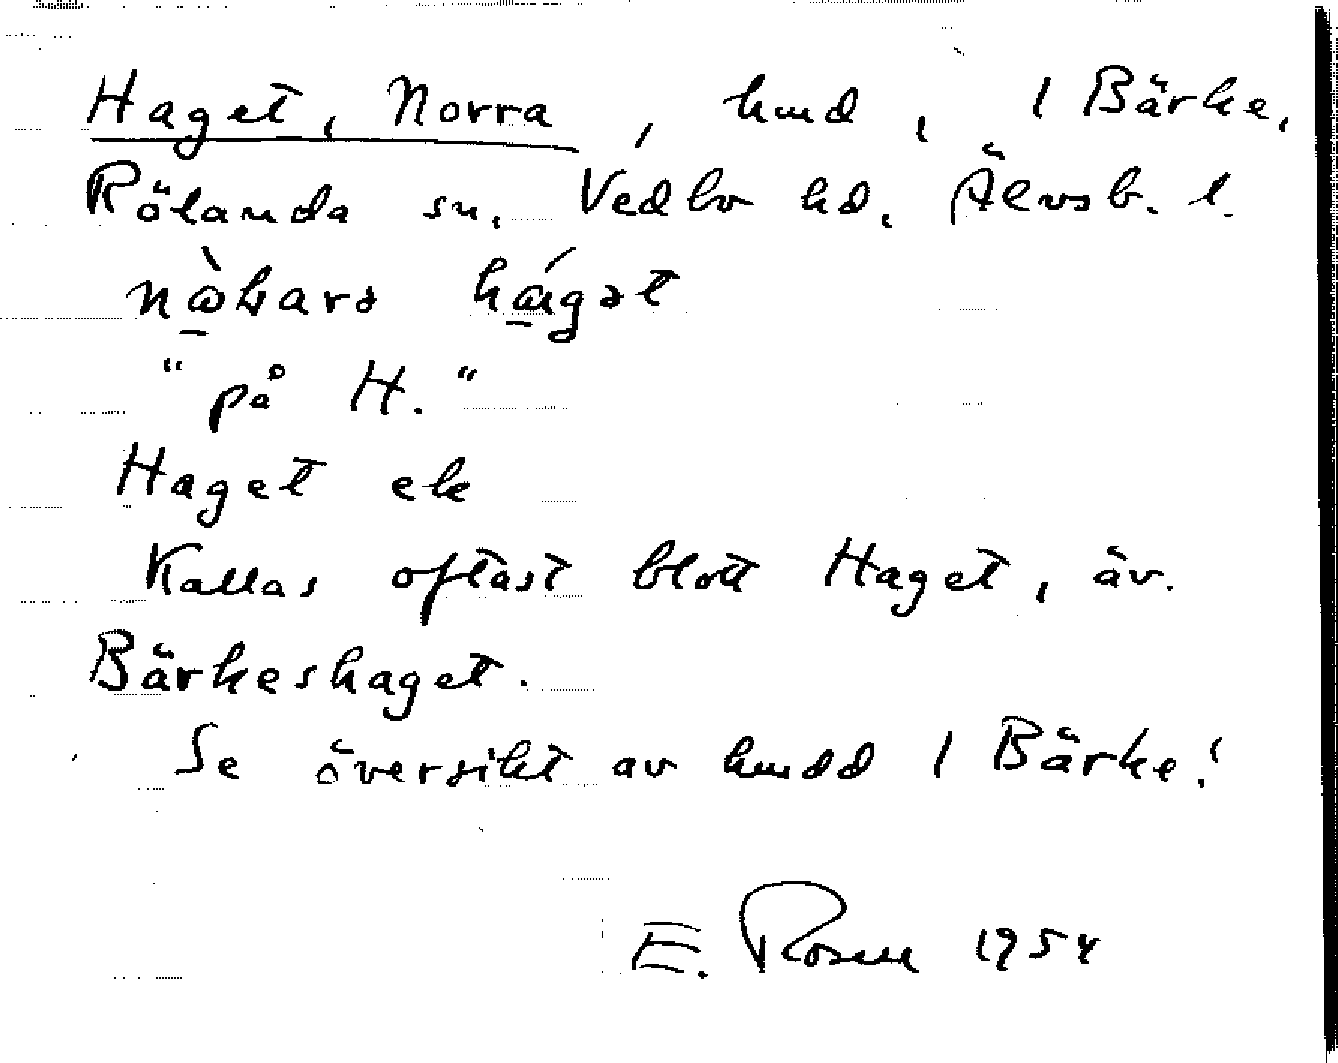 Haget, Norra, hmd, 1 Bärke,
Rölanda sn, Vedbo hd, Älvsb. l.
hágət
"på H."
Haget ek
Kallas oftast blott Haget, äv.
Bärkeshaget.
Se översikt av hmdd 1 Bärke!
E. Rosén 1954